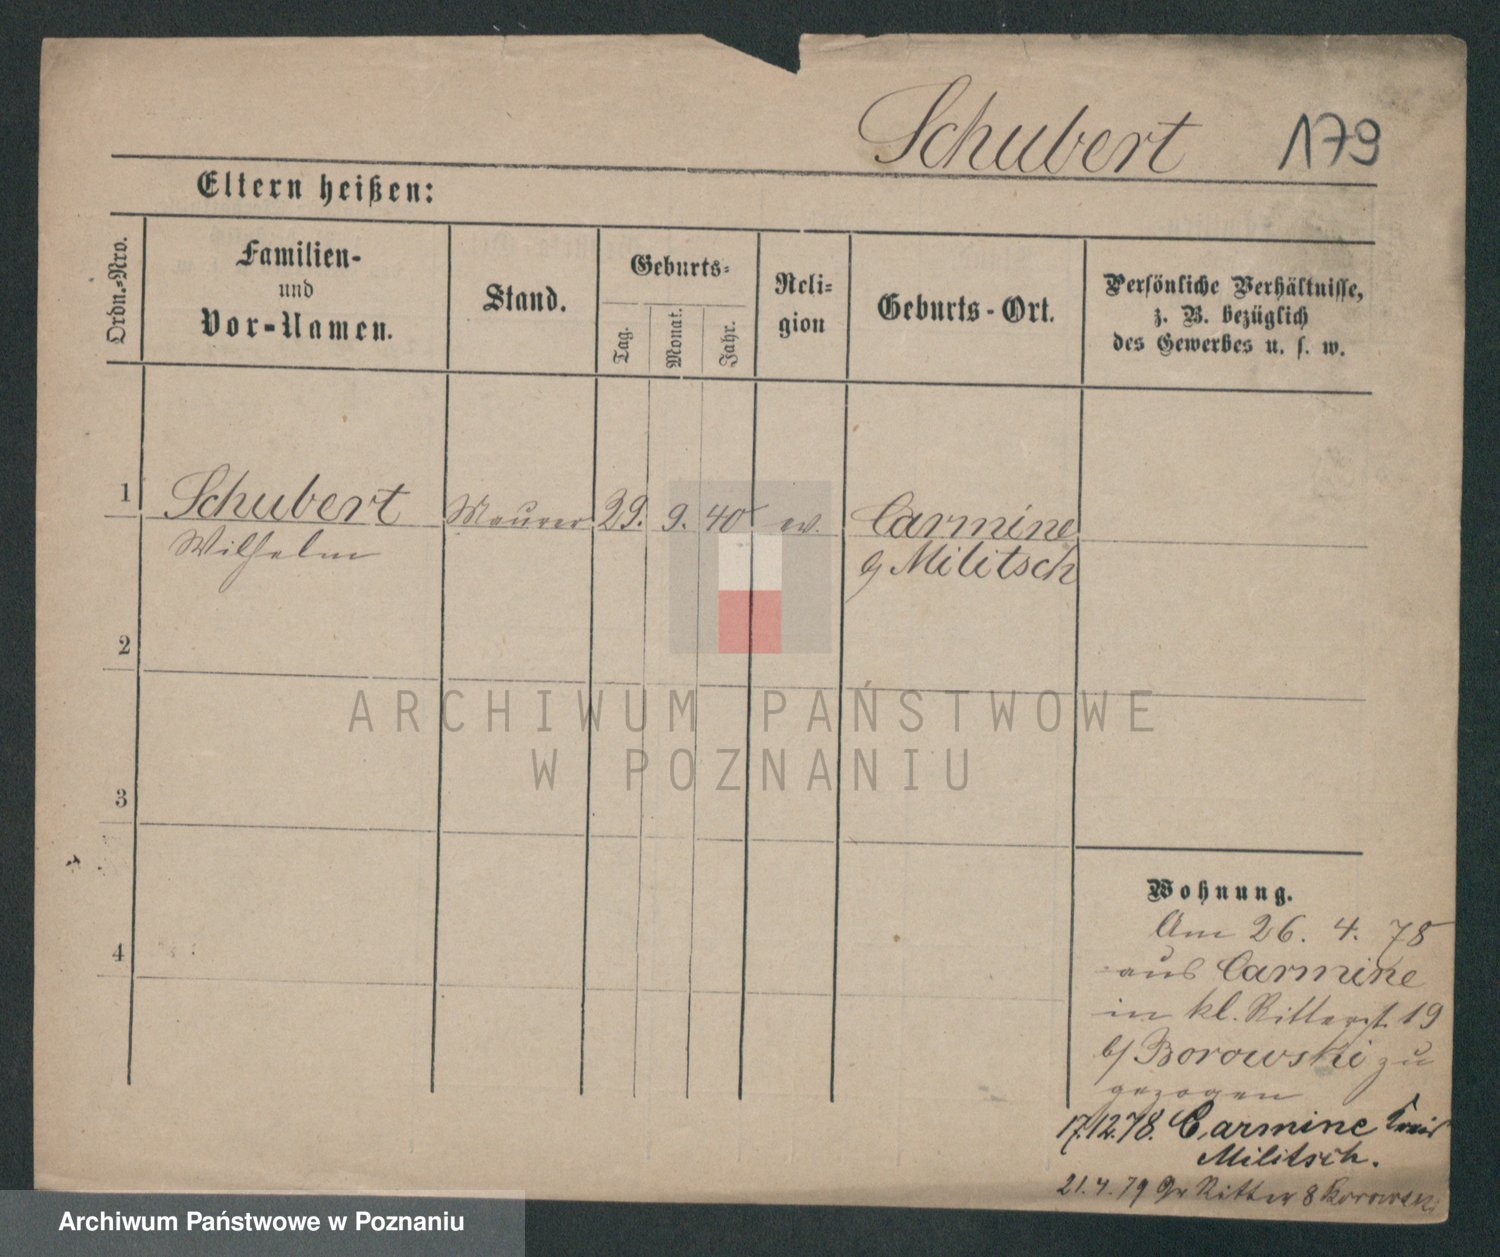 Schubert 179
Eltern heißen:
Ordn.-Nro.
Familien-
und
Vor-Namen.
Stand.
Geburts-
Tag.
Monat.
Jahr.
Reli-
gion
Geburts-Ort.
Persönliche Verhältnisse,
z. B. bezüglich
des Gewerbes u. s. w.
1 Schubert Maurer 29. 9. 40 ev. Carmine
Wilhelm b/ Militsch
2
ARCHIWUM PAŃSTWOWE
W POZNANIU
3
Wohnung.
4
Am 26. 4. 78
aus Carmine
in kl. Ritterst. 19
b/ Borowski zu
gezogen
17.12.78. Carmine Kreis
Militsch.
21.4.79 Gr Ritter 8 Borowski
Archiwum Państwowe w Poznaniu